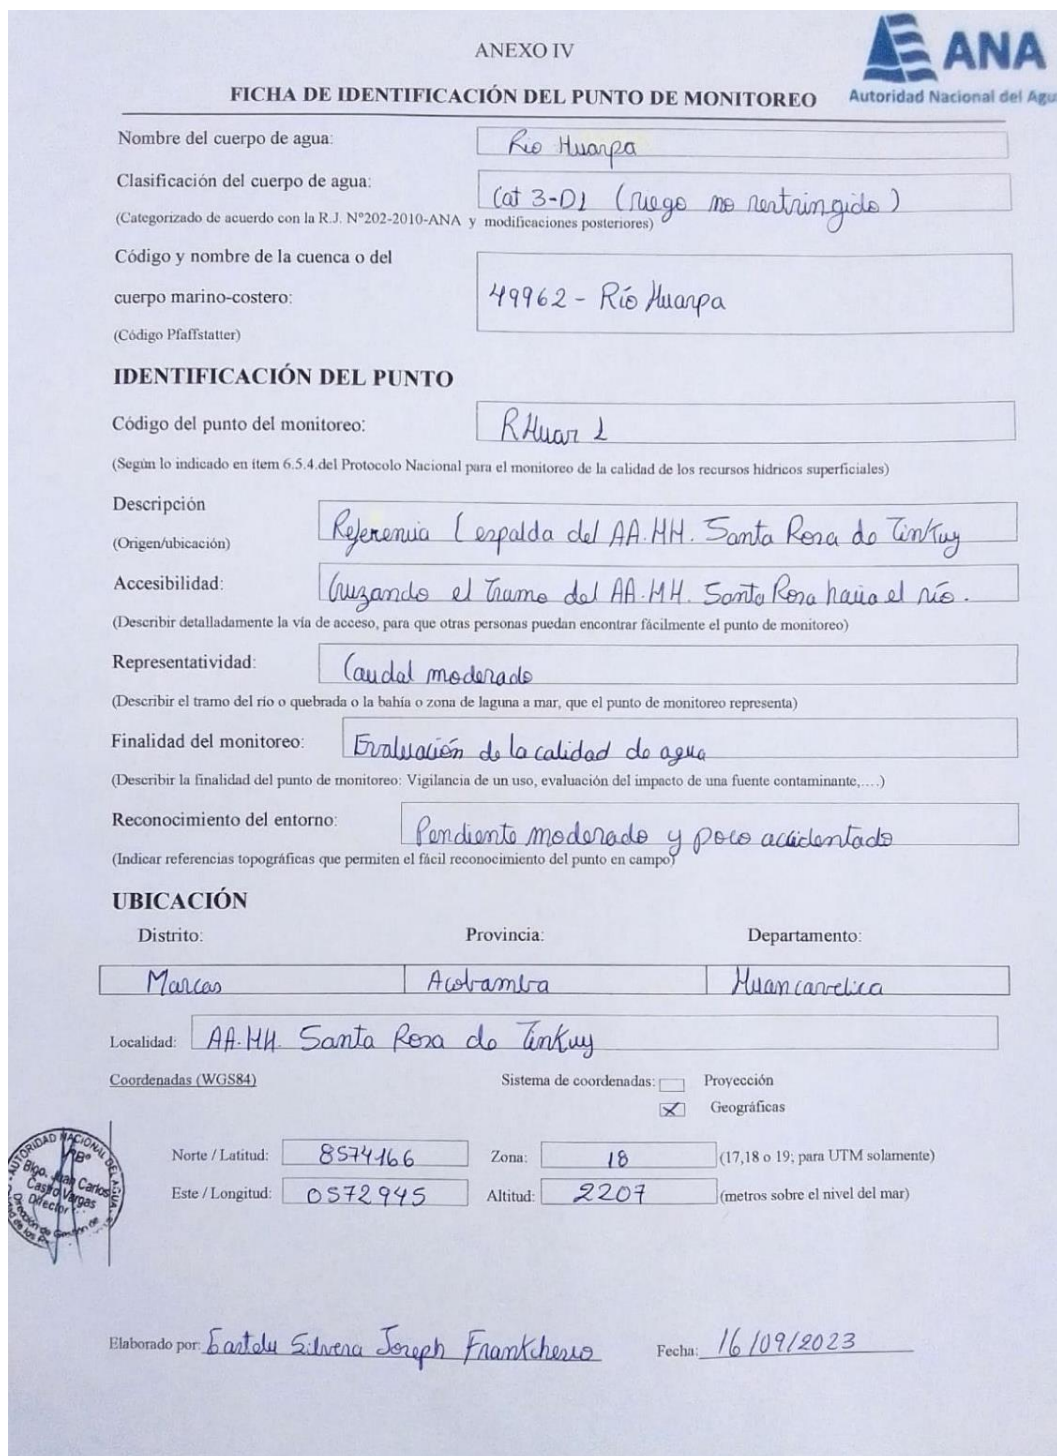 ANEXO IV
ANA
Autoridad Nacional del Agu
FICHA DE IDENTIFICACIÓN DEL PUNTO DE MONITOREO
Nombre del cuerpo de agua: Rio Huarpa
Clasificación del cuerpo de agua: Cat 3-D1 (riego no restringido)
(Categorizado de acuerdo con la R.J. N°202-2010-ANA y modificaciones posteriores)
Código y nombre de la cuenca o del
cuerpo marino-costero: 49962 - Río Huarpa
(Código Pfaffstatter)
IDENTIFICACIÓN DEL PUNTO
Código del punto del monitoreo: RHuar 1
(Según lo indicado en ítem 6.5.4.del Protocolo Nacional para el monitoreo de la calidad de los recursos hídricos superficiales)
Descripción
(Origen/ubicación) Referencia (espalda del AA.HH. Santa Rosa de Tinkuy
Accesibilidad: Cruzando el tramo del AA.HH. Santa Rosa hacia el río.
(Describir detalladamente la vía de acceso, para que otras personas puedan encontrar fácilmente el punto de monitoreo)
Representatividad: Caudal moderado
(Describir el tramo del río o quebrada o la bahía o zona de laguna a mar, que el punto de monitoreo representa)
Finalidad del monitoreo: Evaluación de la calidad de agua
(Describir la finalidad del punto de monitoreo: Vigilancia de un uso, evaluación del impacto de una fuente contaminante,....)
Reconocimiento del entorno: Pendiente moderado y poco accidentado
(Indicar referencias topográficas que permiten el fácil reconocimiento del punto en campo)
UBICACIÓN
Distrito: Provincia: Departamento:
Marcas Acobamba Huancavelica
Localidad: AA.HH. Santa Rosa de Tinkuy
Coordenadas (WGS84) Sistema de coordenadas: Proyección
X Geográficas
Norte / Latitud: 8574166 Zona: 18 (17,18 o 19; para UTM solamente)
Este / Longitud: 0572945 Altitud: 2207 (metros sobre el nivel del mar)
AUTORIDAD NACIONAL DEL AGUA
V°B°
Blgo. Juan Carlos
Castro Vargas
Director
Dirección de Gestión de
Elaborado por: Silvera Joseph Fecha: 16/09/2023